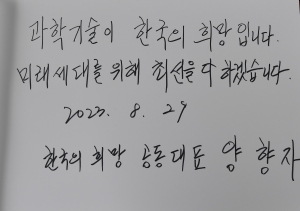 과학기술이 한국의 희망입니다.
미래세대를 위해 최선을 다 하겠습니다.
2023. 8. 29
한국의 희망 공동대표 양 향 자